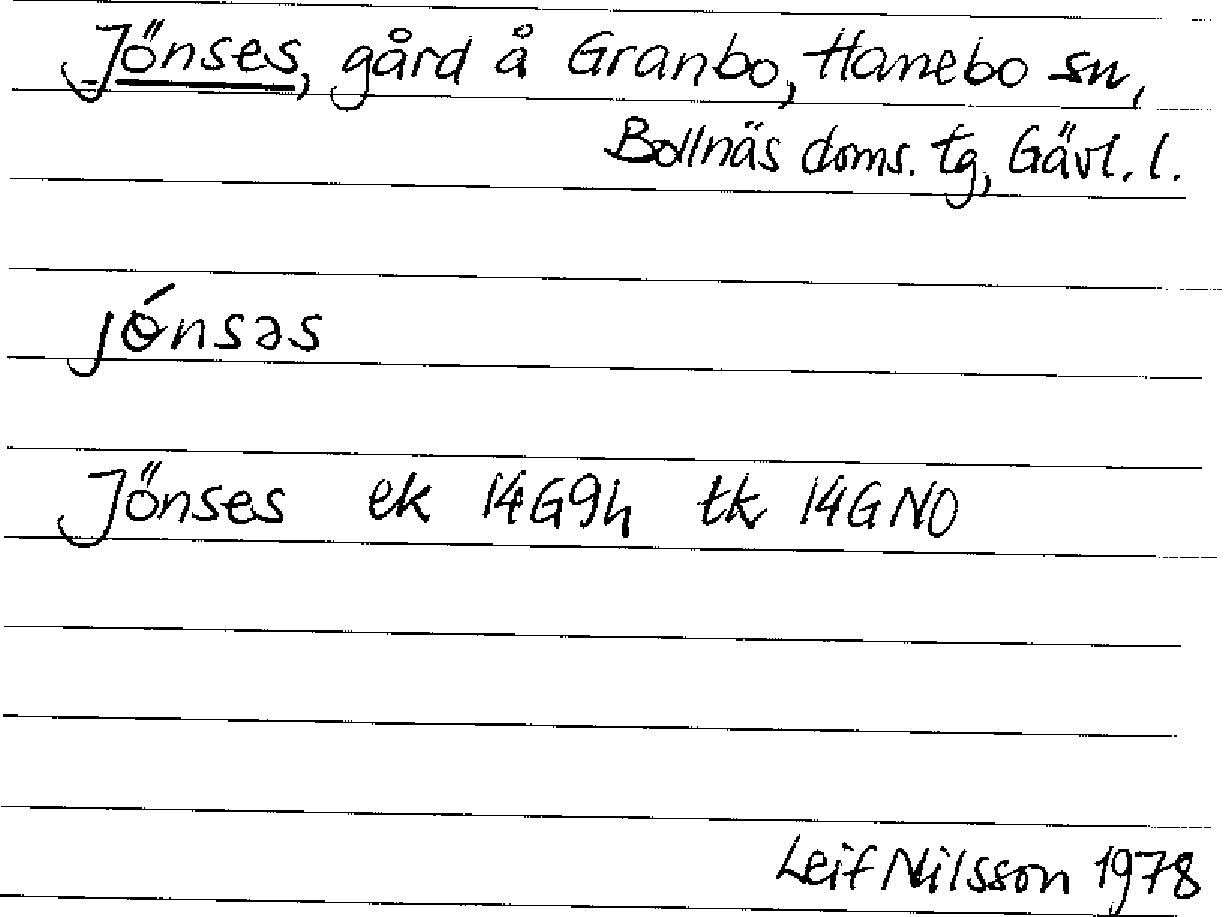 Jönses, gård å Granbo, Hanebo sn,
Bollnäs doms. tg, Gävl. l.
jǿnsəs
Jönses ek 14G9h tk 14GNO
Leif Nilsson 1978